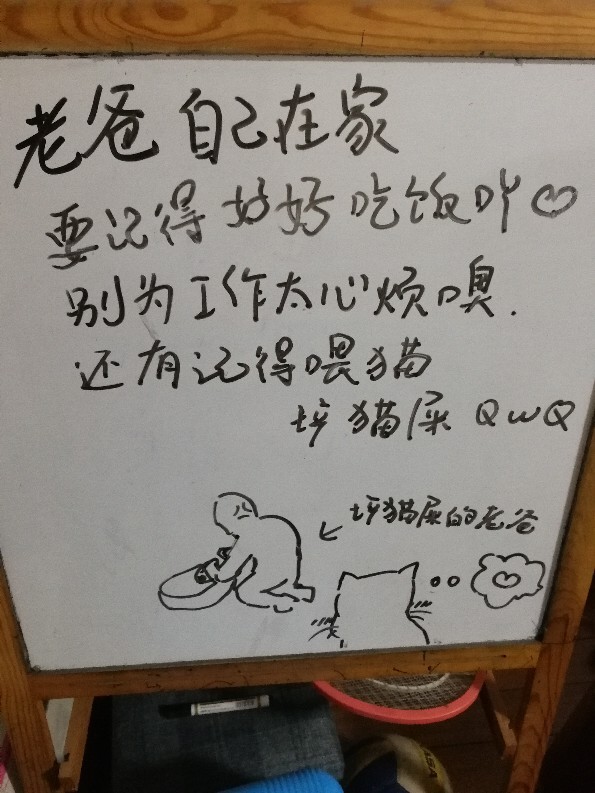 老爸自己在家
要记得好好吃饭吖♡
别为工作太心烦噢.
还有记得喂猫
铲猫屎 QWQ
铲猫屎的老爸